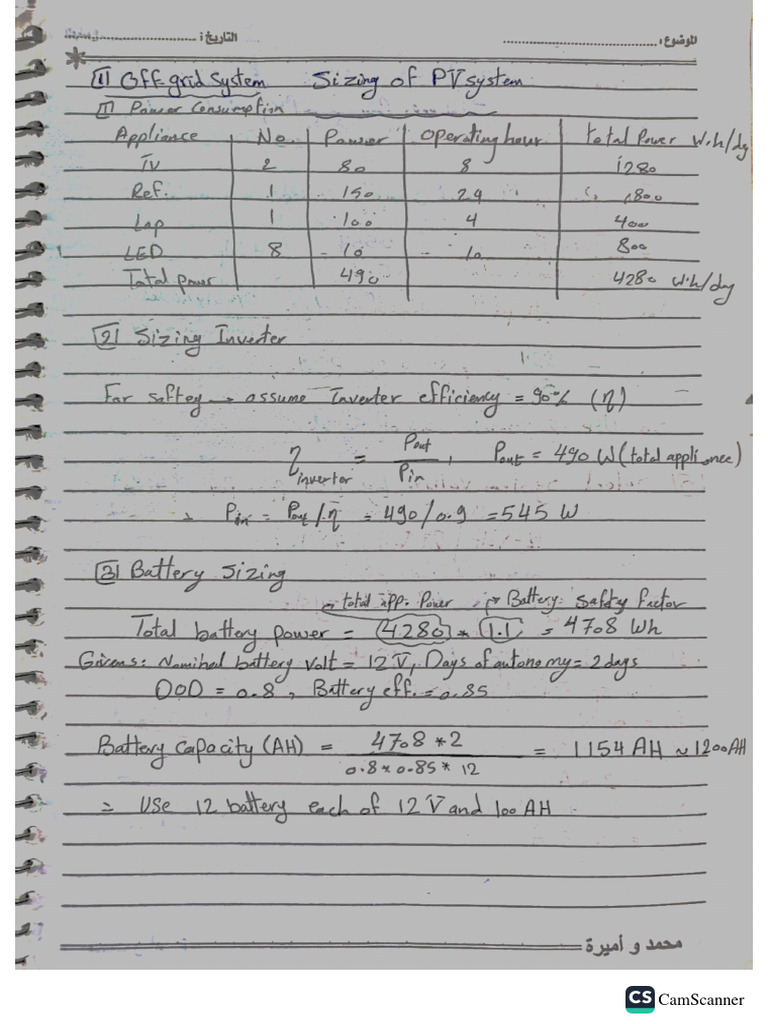 الموضوع: التاريخ:
* [1] Off-grid System Sizing of PV system
[1] Power Consumption
Appliance No. Power operating hour total Power W.h/day
TV 2 80 8 1280
Ref. 1 150 24 1800
Lap 1 100 4 400
LED 8 10 10 800
Total power 490 4280 W.h/day
[2] Sizing Inverter
For saftey → assume Inverter efficiency = 90% (η)
η inverter = Pout / Pin , Pout = 490 W (total appliance)
∴ Pin = Pout / η = 490 / 0.9 = 545 W
[3] Battery Sizing
→ total app. Power → Battery Safty Factor
Total battery power = (4280) * [1.1] = 4708 Wh
Givens: Nominal battery volt = 12 V, Days of autonomy = 2 days
DOD = 0.8, Battery eff. = 0.85
Battery capacity (AH) = 4708 * 2 / 0.8 * 0.85 * 12 = 1154 AH ~ 1200 AH
= Use 12 battery each of 12 V and 100 AH
محمد و أميرة
CS CamScanner